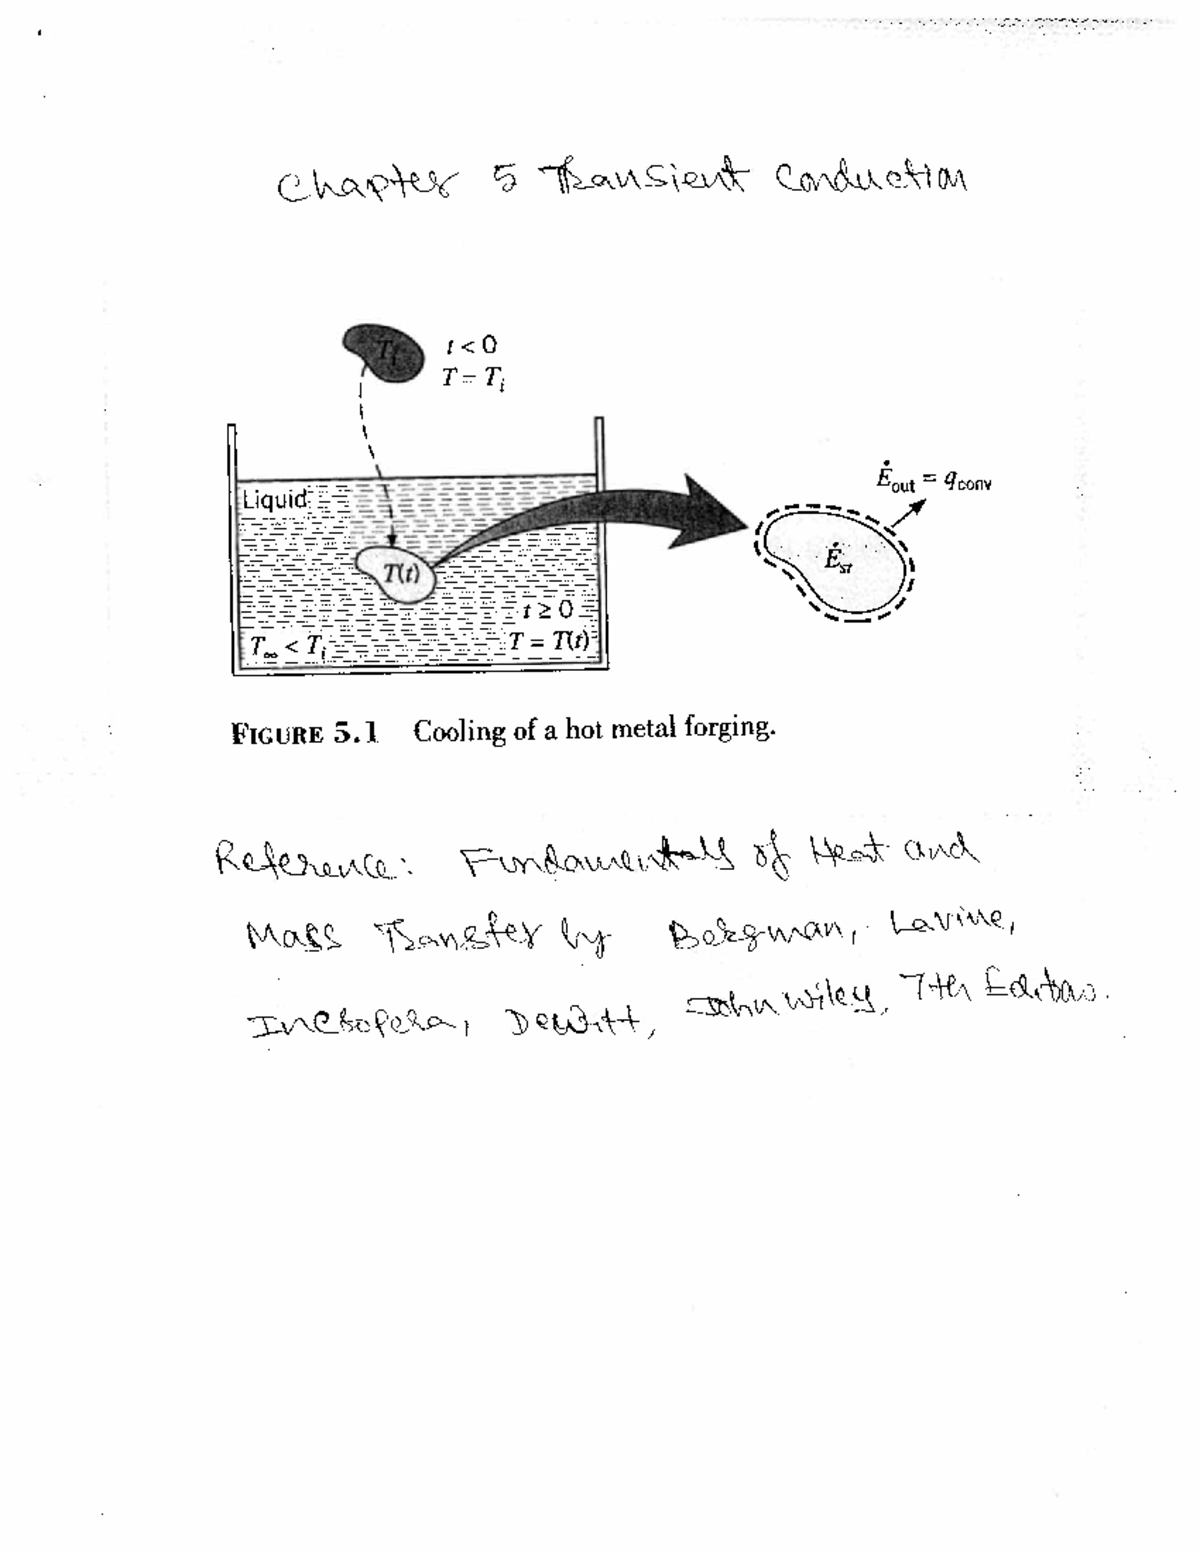 Chapter 5 Transient Conduction
Ti
t < 0
T = Ti
Liquid
T(t)
t ≥ 0
T∞ < Ti
T = T(t)
Ėout = qconv
Ėst
FIGURE 5.1 Cooling of a hot metal forging.
Reference: Fundamentals of Heat and
Mass Transfer by Bergman, Lavine,
Incropera, Dewitt, John Wiley, 7th Edition.